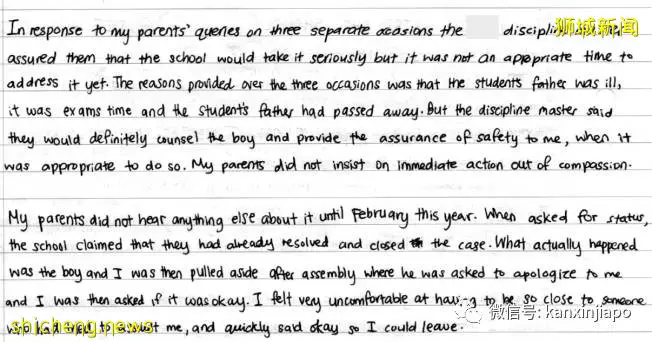 狮城新闻
In response to my parents' queries on three separate occasions the discipline
assured them that the school would take it seriously but it was not an appropriate time to
address it yet. The reasons provided over the three occasions was that the students father was ill,
it was exams time and the student's father had passed away. But the discipline master said
they would definitely counsel the boy and provide the assurance of safety to me, when it
was appropriate to do so. My parents did not insist on immediate action out of compassion.
My parents did not hear anything else about it until February this year. When asked for status,
the school claimed that they had already resolved and closed the case. What actually happened
was the boy and I was then pulled aside after assembly where he was asked to apologize to me
and I was then asked if it was okay. I felt very uncomfortable at having to be so close to someone
who had tried to me, and quickly said okay so I could leave.
shicheng.news
微信号: kanxinjiapo